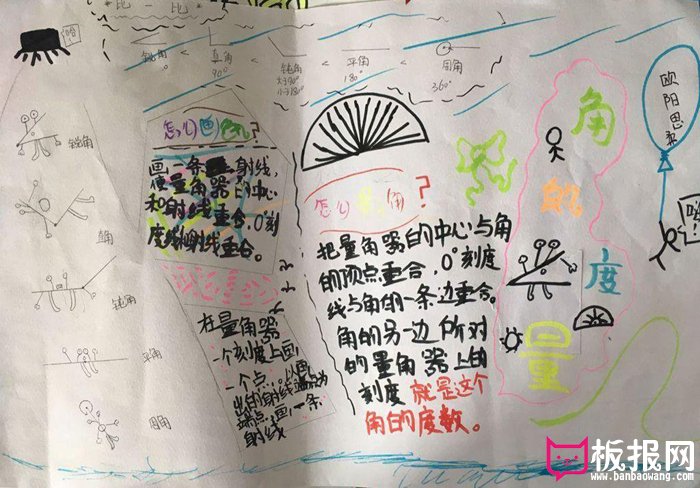 比一比
直角
钝角
平角
周角
<
<
<
<
90°
大于90°
小于180°
180°
360°
锐角
钝角
平角
周角
怎么画角?
画一条射线,
使量角器的中心
和射线重合,0°刻
度线射线重合。
在量角器
一个刻度上画
一个点
射线
怎么量角?
把量角器的中心与角
的顶点重合,0°刻度
线与角的一条边重合。
角的另一边所对
的量角器上的
刻度就是这个
角的度数。
角的度量
欧阳思
板报网
www.banbaowang.com